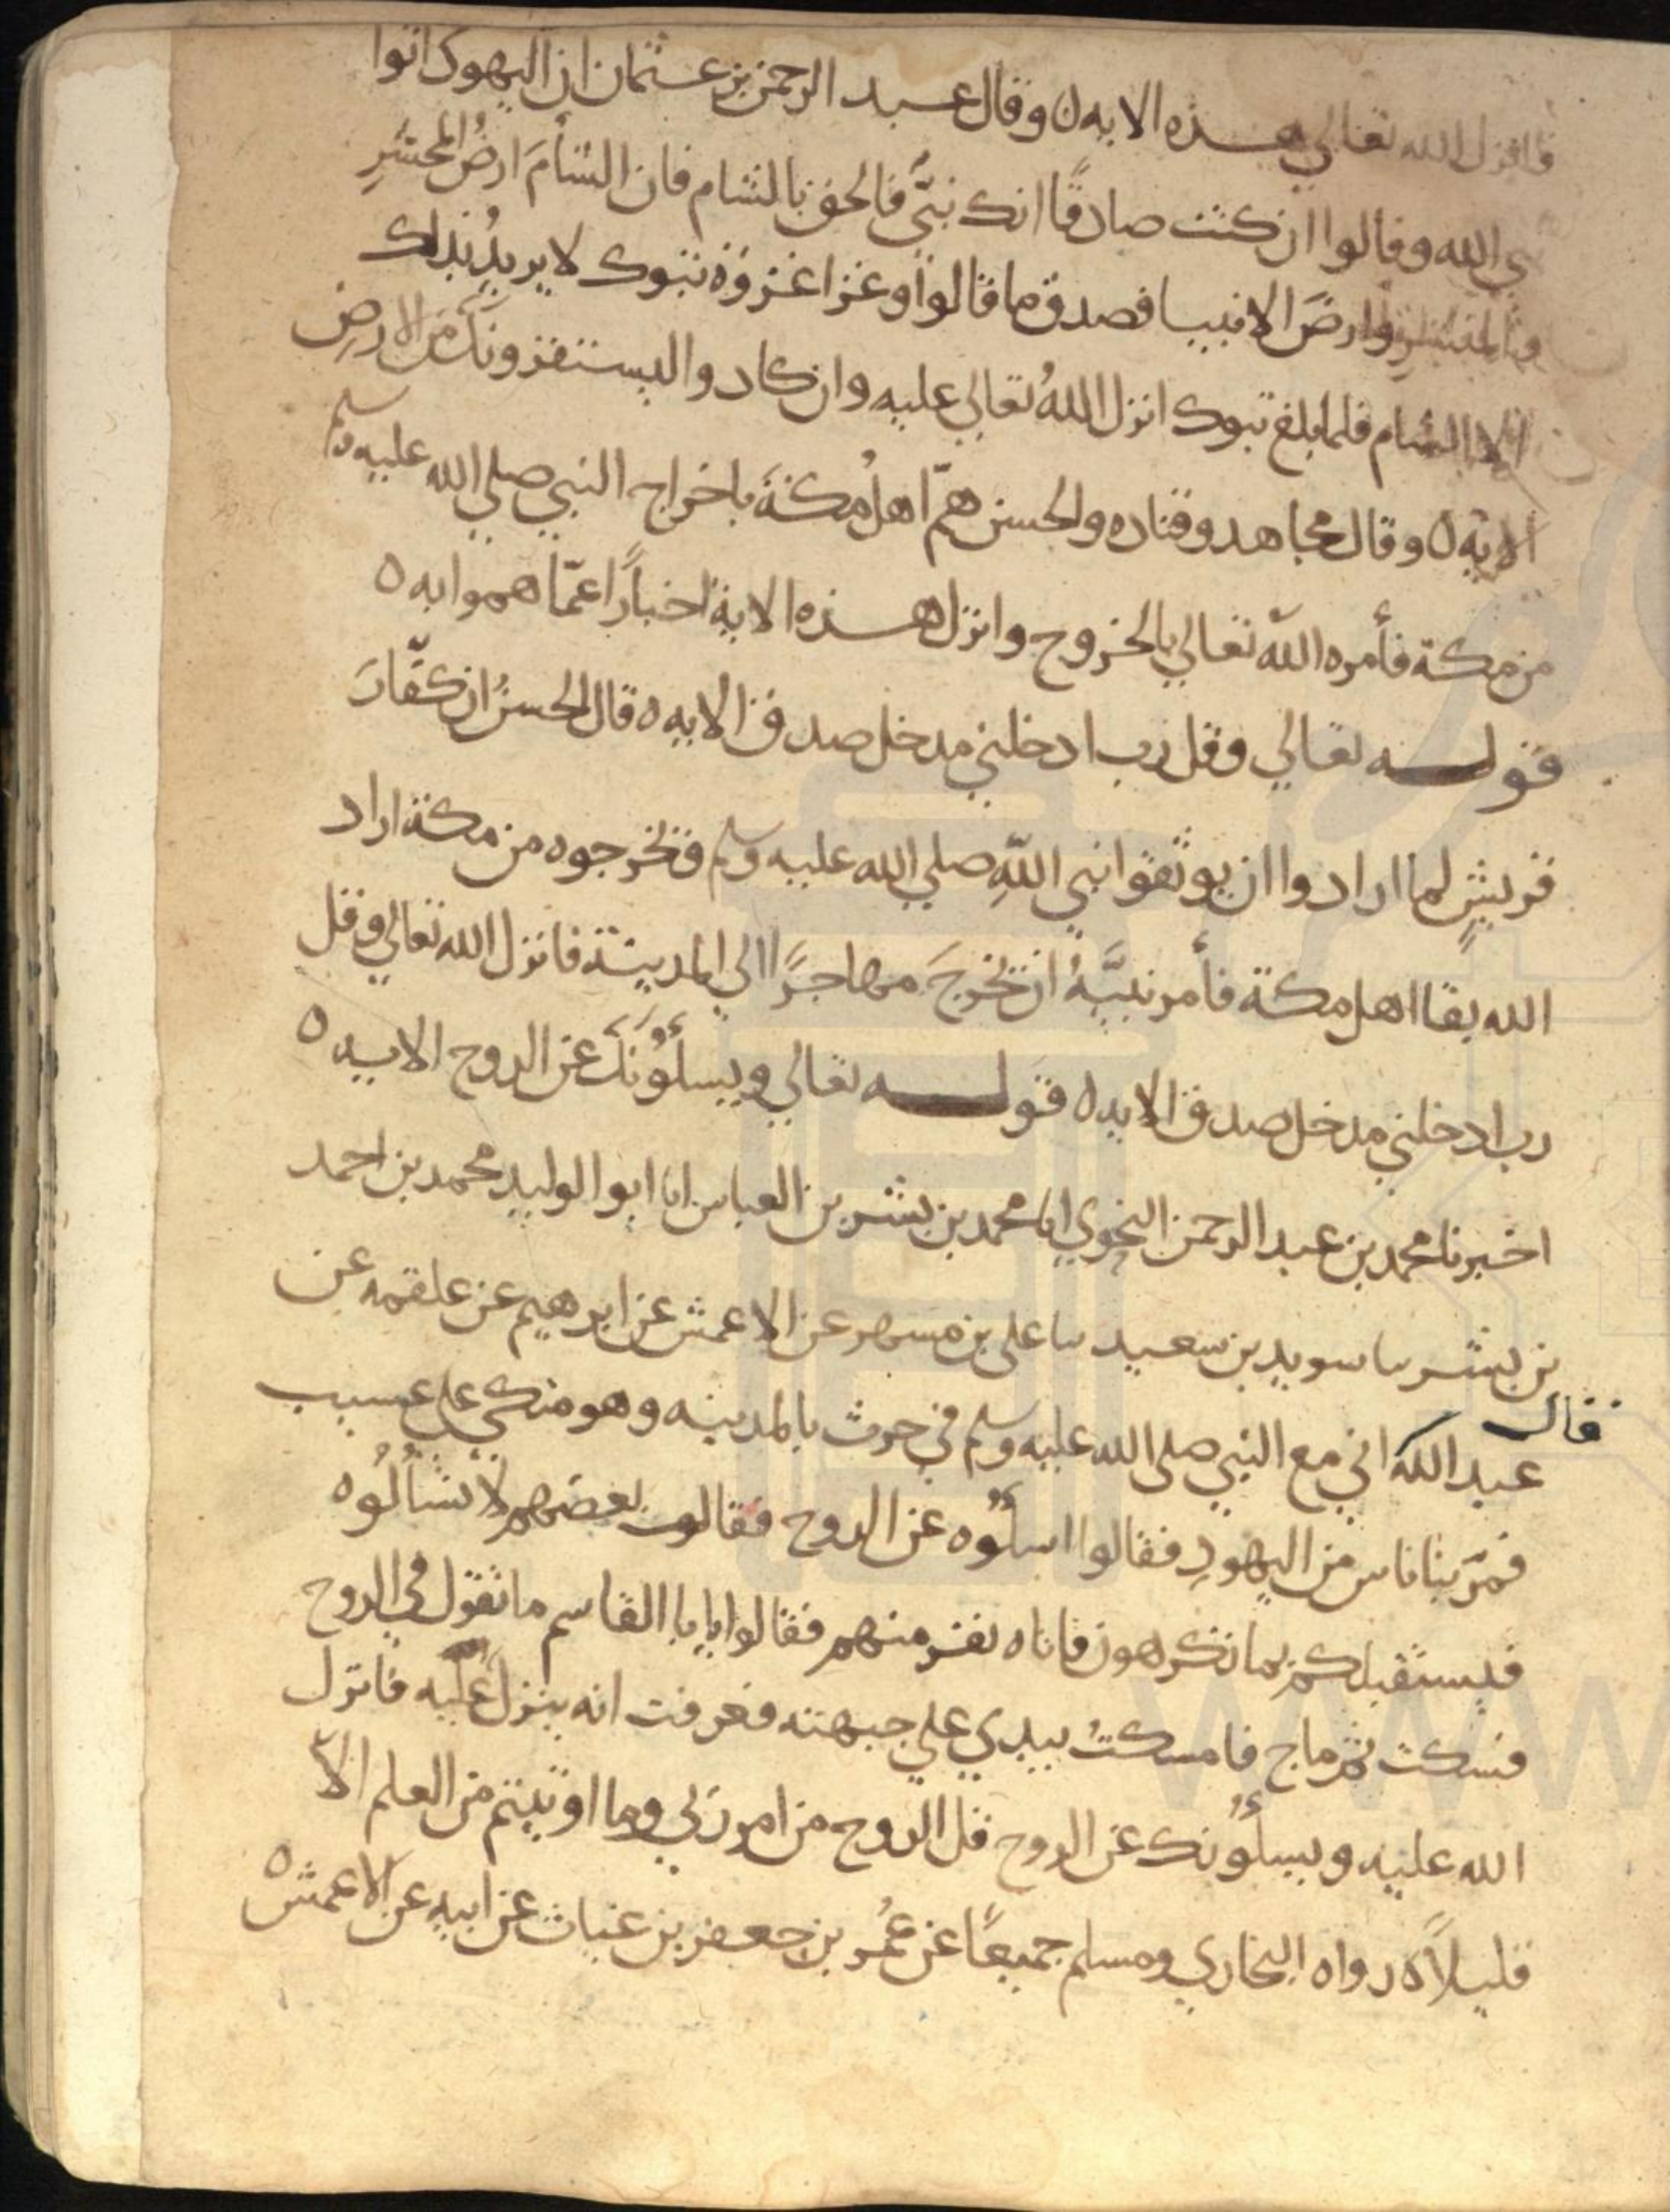 فانزل الله تعالي هذه الايه ٥ وقال عبد الرحمن بن عثمان ان اليهود اتوا
نبي الله وقالوا ان كنت صادقًا انك نبيّ فالحق بالشام فان الشأمَ ارضُ المحشَرِ
والمنشرِ وارضَ الانبيا فصدق ما قالوا وغزا غزوة تبوك لا يريدُ بذلك
الا الشام فلما بلغ تبوك انزل اللهُ تعالي عليه وان كادوا ليستفزونكَ من الارضِ
الايه ٥ وقال مجاهد وقتاده والحسن همّ اهلُ مكةَ باخراج النبي صلي الله عليه وسلم
من مكة فأمره اللّه تعالي بالخروج وانزل هذه الاية اخبارًا عمّا هموا به ٥
قوله تعالي وقل رب ادخلني مدخل صدق الايه ٥ قال الحسنُ ان كفّارَ
قريشٍ لما ارادوا ان يوثقوا نبي اللّهِ صلي الله عليه وسلم فيخرجوه من مكة اراد
الله بقا اهل مكة فأمر نبيَّهُ ان يخرجَ مهاجرًا الي المدينة فانزل الله تعالي وقل
رب ادخلني مدخل صدق الايه ٥ قوله تعالي ويسلُونكَ عن الروح الايه ٥
اخبرنا محمد بن عبد الرحمن النحوي انا محمد بن بشر بن العباس انا ابو الوليد محمد بن احمد
بن بشر سا سويد بن سعيد سا علي بن مسهر عن الاعمش عن ابرهيم عن علقمه عن
قال
عبد الله اني مع النبي صلى الله عليه وسلم في حرث بالمدينه وهو متكي علي عسيب
فمرّ بنا ناس من اليهودِ فقالوا اسلُوه عن الروح فقالوا بعضهم لا تسألُوه
فيستقبلكم بما تكرهون فاتاه نفر منهم فقالوا يا با القاسم ما تقول في الروح
فسكت ثم ماج فامسكتُ بيدي علي جبهته فعرفت انه ينزل عليه فانزل
الله عليه ويسلُونك عن الروح قل الروح من امر ربي وما اوتيتم من العلم الا
قليلاً ٥ رواه البخاري ومسلم جميعًا عن عُمر بن جعفر بن غياث عن ابيه عن الاعمش ٥